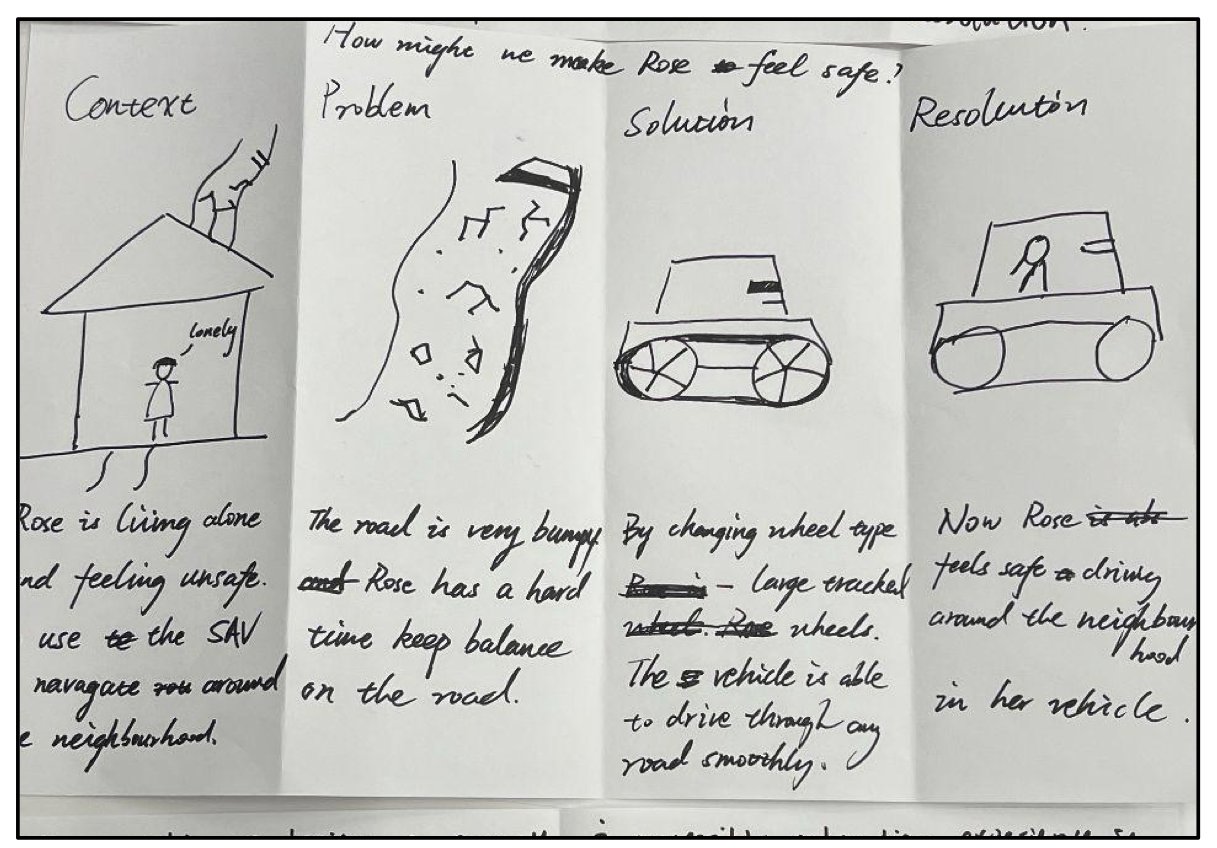 How might we make Rose feel safe?
Context
lonely
Rose is living alone
nd feeling unsafe.
use the SAV
navagate around
e neighbourhood.
Problem
The road is very bumpy
Rose has a hard
time keep balance
on the road.
Solution
By changing wheel type
- large tracked
wheels.
The vehicle is able
to drive through any
road smoothly.
Resolution
Now Rose
feels safe driving
around the neighbour
hood
in her vehicle.